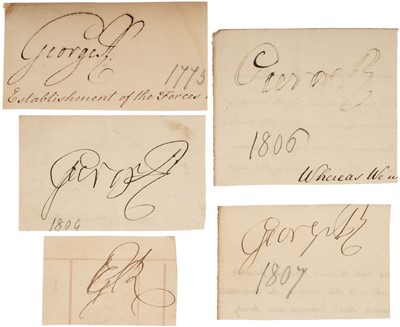 George R
1773
Establishment of the Forces
George R
1809
GR
George R
1806
Whereas We w
George R
1807